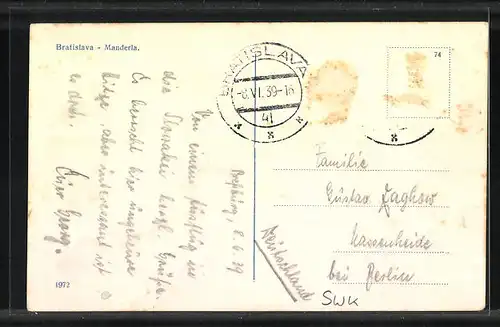 Bratislava - Manderla.
BRATISLAVA
-8.VI.39-16
41
74
Preßburg, 8.6.39
Von einem Ausflug in
die Slowakei herzl. Grüße.
Es herrscht hier ungeheure
Hitze, aber interessant ist
es doch.
Euer Georg.
Familie
Gustav
Wassenheide
bei Berlin
Deutschland
SWK
1972